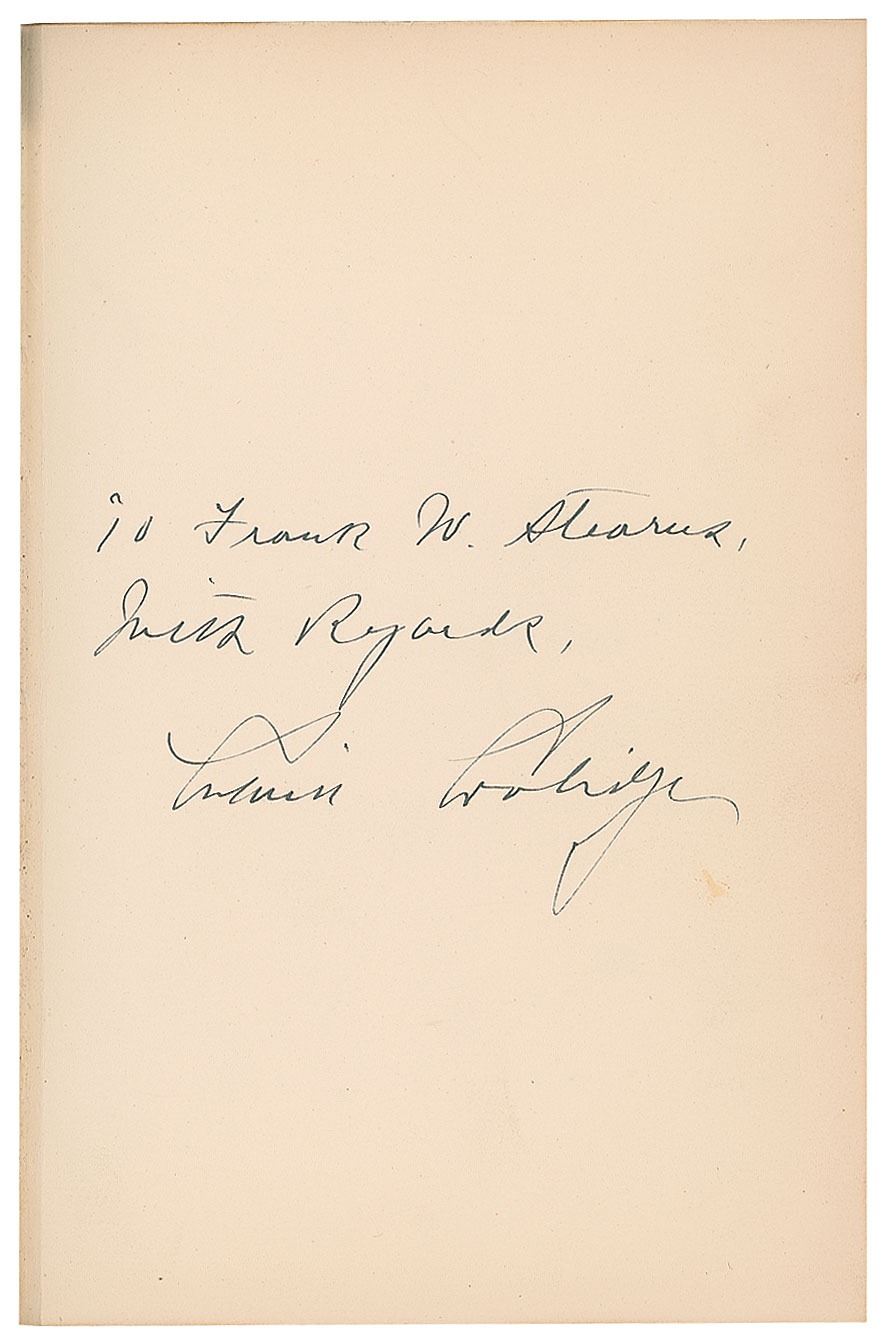 To Frank W. Stearns,
With Regards,
Calvin Coolidge